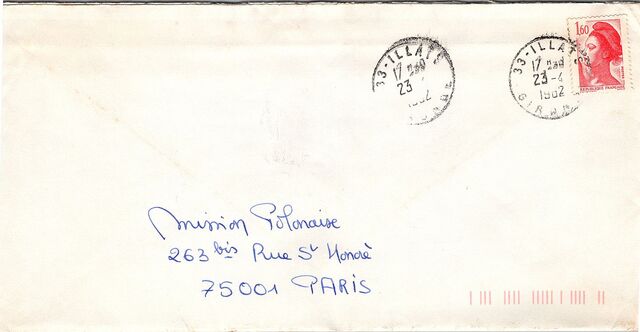 33-ILLATS
17H30
23-4
1982
GIRONDE
33-ILLATS
17H30
23-4
1982
GIRONDE
1,60
REPUBLIQUE FRANÇAISE
Mission Polonaise
263 bis Rue St Honoré
75001 PARIS